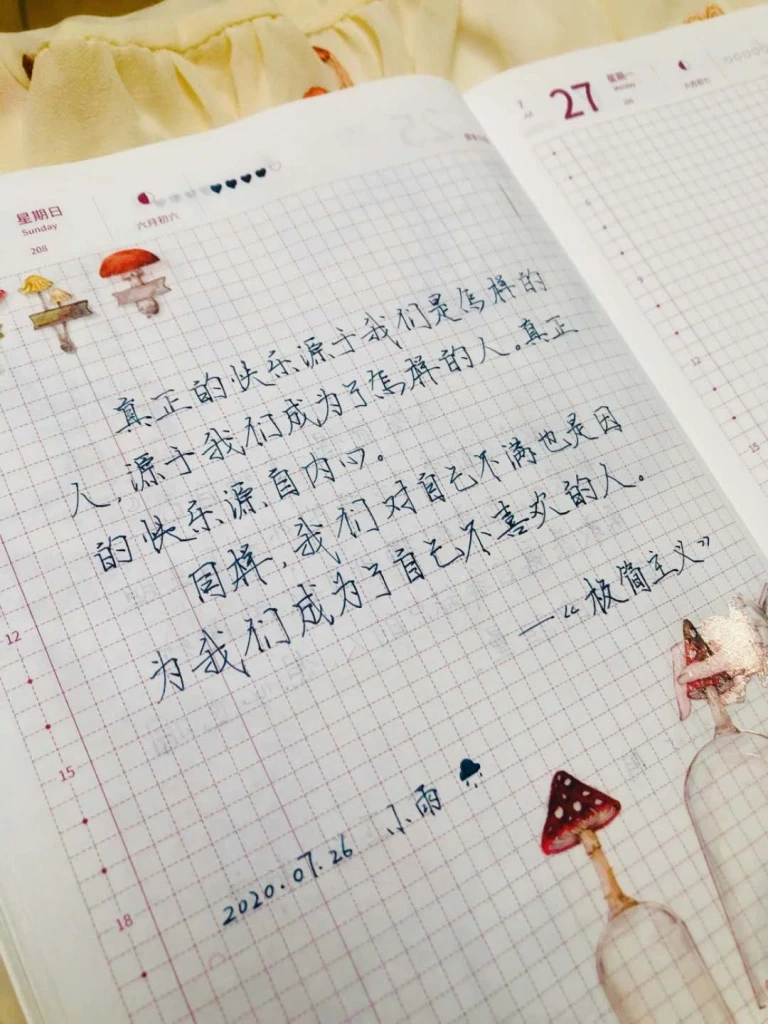 星期日
Sunday
208
六月初六
27
星期一
Monday
209
六月初七
真正的快乐源于我们是怎样的
人,源于我们成为了怎样的人。真正
的快乐源自内心。
同样,我们对自己不满也是因
为我们成为了自己不喜欢的人。
—“极简主义”
12
15
18
12
15
2020.07.26 小雨